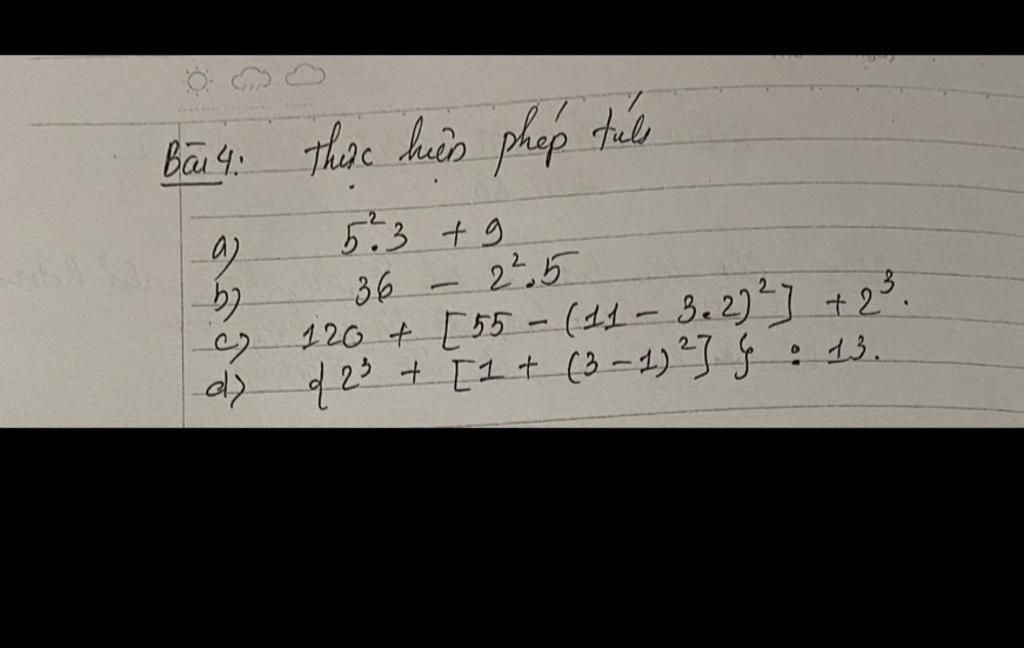 Bài 4: thực hiện phép tính
a) 5².3 + 9
b) 36 - 2².5
c) 120 + [55 - (11 - 3.2)²] + 2³.
d) {2³ + [1 + (3 - 1)²]} : 13.